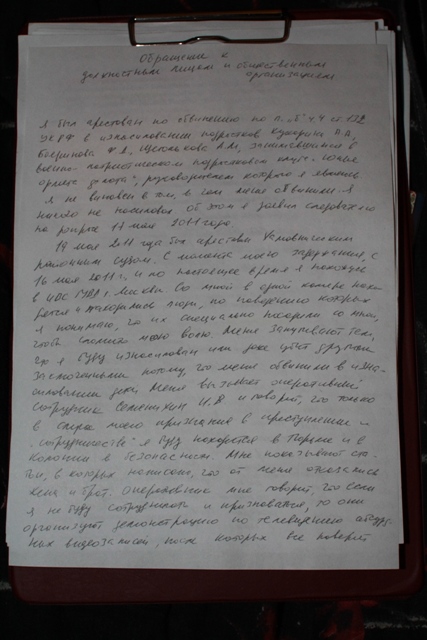 Обращение к
должностным лицам и общественным
организациям
Я был арестован по обвинению по п. "б" ч 4 ст 132
УК РФ в изнасиловании подростков П.А,
А.М, занимавшихся в
военно-патриотическом подростковом клубе "Юные
орлята", руководителем которого я являюсь
Я не виновен в том, в чем меня обвинили. Я
никого не насиловал об этом я заявил следователю
на допросе 17 мая 2011 года.
18 мая 2011 года был арестован Хамовническим
районным судом. С момента моего задержания, с
16 мая 2011 г, и по настоящее время я нахожусь
в ИВС ГУВД г. Москвы. Со мной в одной камере нахо
дятся люди, по поведению которых
я понимаю, что их специально посадили со мной,
чтоб сломить мою волю. Меня запугивают тем,
что я буду изнасилован или даже убит другими
заключенными потому, что меня обвинили в изна-
силовании детей. Меня вызывает оперативный
сотрудник Семенихин И.В и говорит, что только
в случае моего признания в преступлении и
"сотрудничестве" я буду находится в тюрьме и в
колонии в безопасности. Мне показывают ста-
тьи, в которых написали, что от меня отказались
жена и брат. Оперативник мне говорит, что если
я не буду сотрудничать и признаваться, то они
организуют демонстрацию по телевидению абсурд-
ных видеозаписей, после которых все поверят